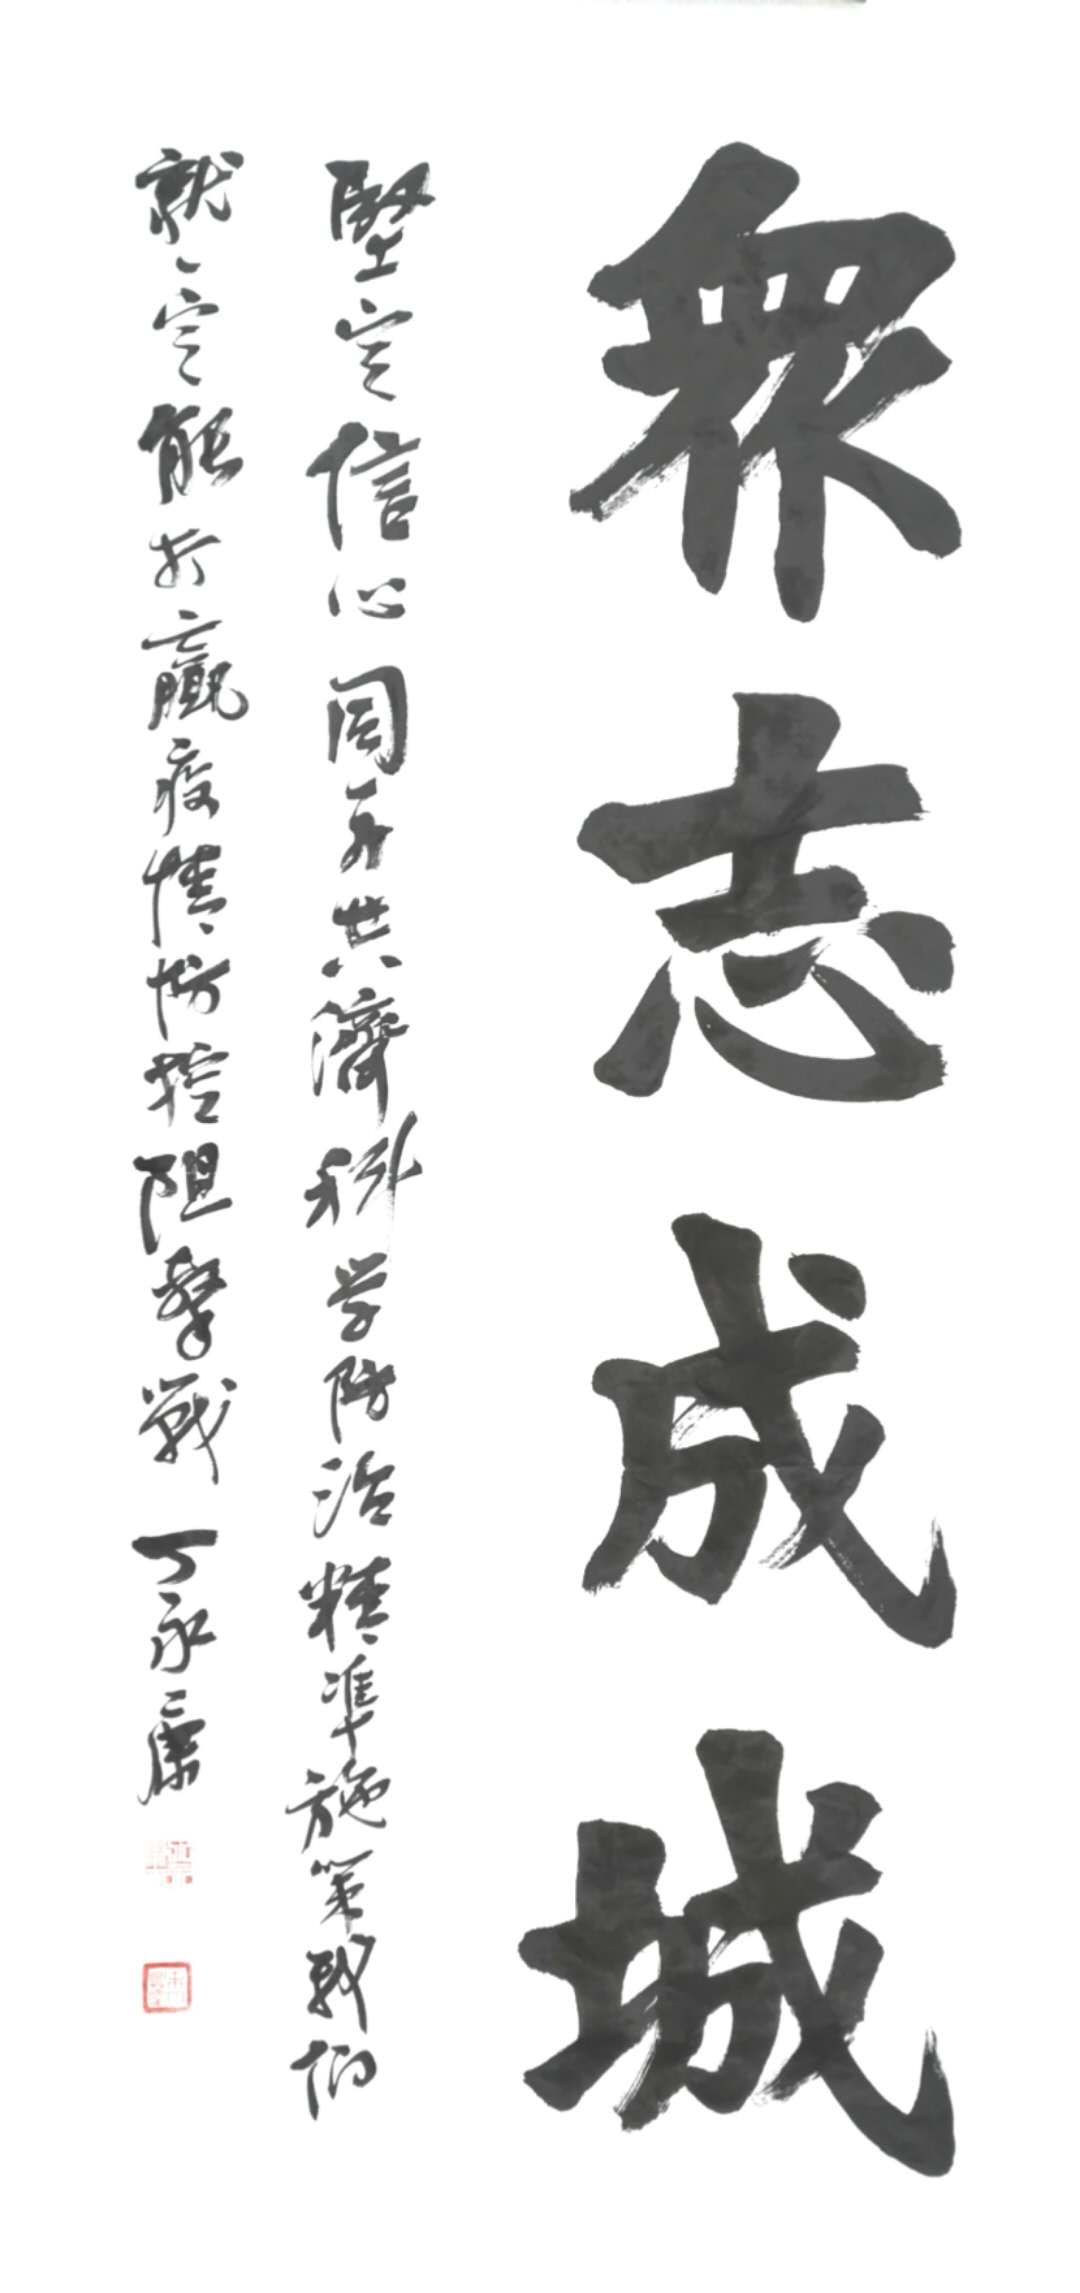 衆志成城
堅定信心同舟共濟科学防治精準施策我们
就一定能打贏疫情防控阻擊戰 丁永康